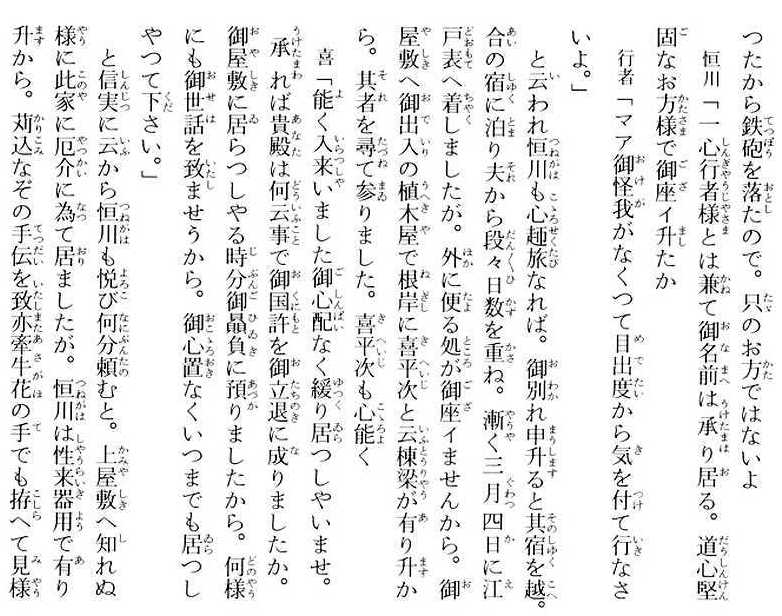 つたから鉄砲を落たので。只のお方ではないよ
恒川「一心行者様とは兼て御名前は承り居る。道心堅
固なお方様で御座イ升たか
行者「マア御怪我がなくつて目出度から気を付て行なさ
いよ。」
と云われ恒川も心趣旅なれば。御別れ申升ると其宿を越。
合の宿に泊り夫から段々日数を重ね。漸く三月四日に江
戸表へ着しましたが。外に便る処が御座イませんから。御
屋敷へ御出入の植木屋で根岸に喜平次と云棟梁が有り升か
ら。其者を尋て参りました。喜平次も心能く
喜「能く入来いました御心配なく緩り居つしやいませ。
承れば貴殿は何云事で御国許を御立退に成りましたか。
御屋敷に居らつしやる時分御贔負に預りましたから。何様
にも御世話を致ませうから。御心置なくいつまでも居つし
やつて下さい。」
と信実に云から恒川も悦び何分頼むと。上屋敷へ知れぬ
様に此家に厄介に為て居ましたが。恒川は性来器用で有り
升から。苅込なぞの手伝を致亦牽牛花の手でも拵へて見様